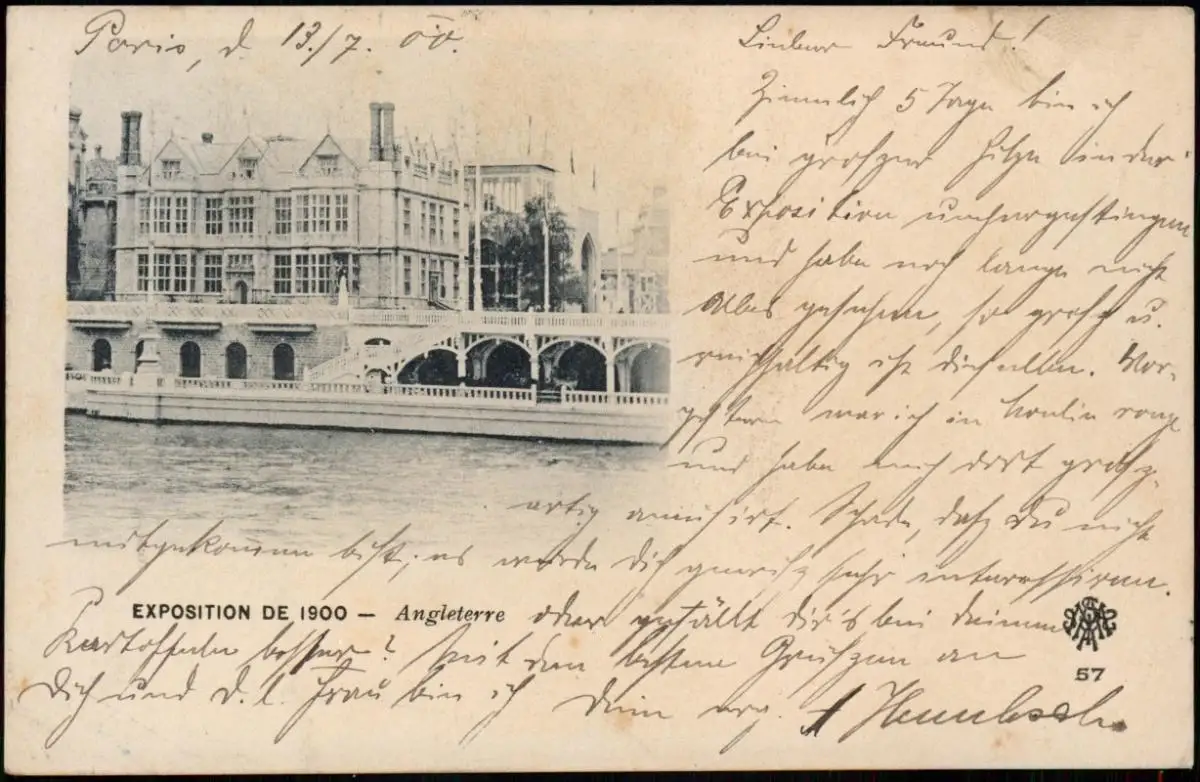 Paris, d 13./7. 00.
Lieber Freund!
Ziemlich 5 Tage bin ich
bei großer Hitze in der
Exposition umhergestiegen
und habe noch lange nicht
Alles gesehen, so groß u.
reichhaltig ist dieselbe. Vor-
gestern war ich in Moulin rouge
und habe mich dort groß-
artig amüsirt. Schade, daß Du nicht
mitgekommen bist, es würde Dich gewiß sehr interessiren.
EXPOSITION DE 1900 — Angleterre
oder gefällt dir's bei Deinen
Kartoffeln besser? Mit den besten Grüßen an
57
Dich und d. l. Frau bin ich Dein erg. A